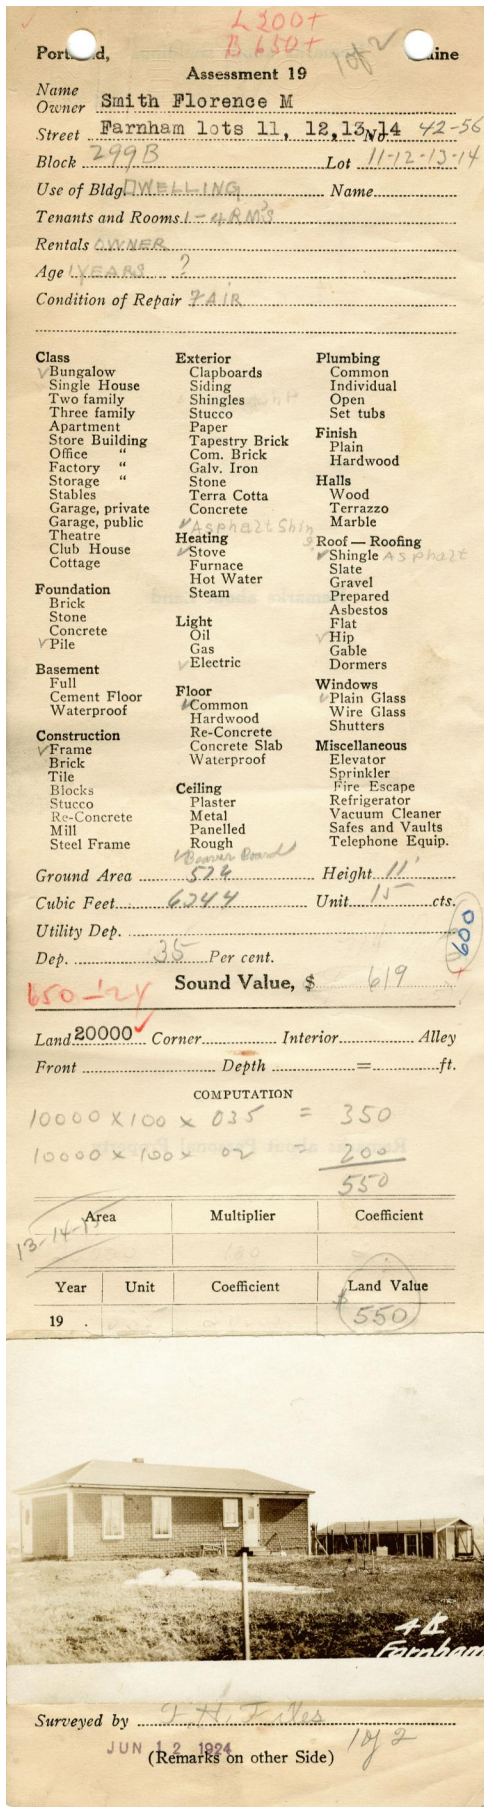 L 200+
B 650+
1 of 2
Portland, Maine
Assessment 19
Name
Owner Smith Florence M
Street Farnham lots 11, 12,13,14 No. 42-56
Block 299B Lot 11-12-13-14
Use of Bldg. DWELLING Name
Tenants and Rooms 1-4 RM'S
Rentals OWNER
Age 1 YEARS ?
Condition of Repair FAIR
Class
✓Bungalow
Single House
Two family
Three family
Apartment
Store Building
Office "
Factory "
Storage "
Stables
Garage, private
Garage, public
Theatre
Club House
Cottage
Foundation
Brick
Stone
Concrete
✓Pile
Basement
Full
Cement Floor
Waterproof
Construction
✓Frame
Brick
Tile
Blocks
Stucco
Re-Concrete
Mill
Steel Frame
Exterior
Clapboards
Siding
Shingles
Stucco
Paper
Tapestry Brick
Com. Brick
Galv. Iron
Stone
Terra Cotta
Concrete
✓Asphalt Shin
Heating
✓Stove
Furnace
Hot Water
Steam
Light
Oil
Gas
✓Electric
Floor
✓Common
Hardwood
Re-Concrete
Concrete Slab
Waterproof
Ceiling
Plaster
Metal
Panelled
Rough
✓Beaver Board
Plumbing
Common
Individual
Open
Set tubs
Finish
Plain
Hardwood
Halls
Wood
Terrazzo
Marble
Roof — Roofing
✓Shingle Asphalt
Slate
Gravel
Prepared
Asbestos
Flat
✓Hip
Gable
Dormers
Windows
✓Plain Glass
Wire Glass
Shutters
Miscellaneous
Elevator
Sprinkler
Fire Escape
Refrigerator
Vacuum Cleaner
Safes and Vaults
Telephone Equip.
Ground Area 524 Height 11'
Cubic Feet 6244 Unit 15 cts.
Utility Dep.
600
Dep. 35 Per cent.
Sound Value, $ 619
650-24
Land 20000 ✓ Corner Interior Alley
Front Depth = ft.
COMPUTATION
10000 x 100 x 035 = 350
10000 x 100 x 02 = 200
550
Area Multiplier Coefficient
13-14-15
Year Unit Coefficient Land Value
19 . $ 550
Farnham
Surveyed by F. H. Files
JUN 12 1924
1 of 2
(Remarks on other Side)